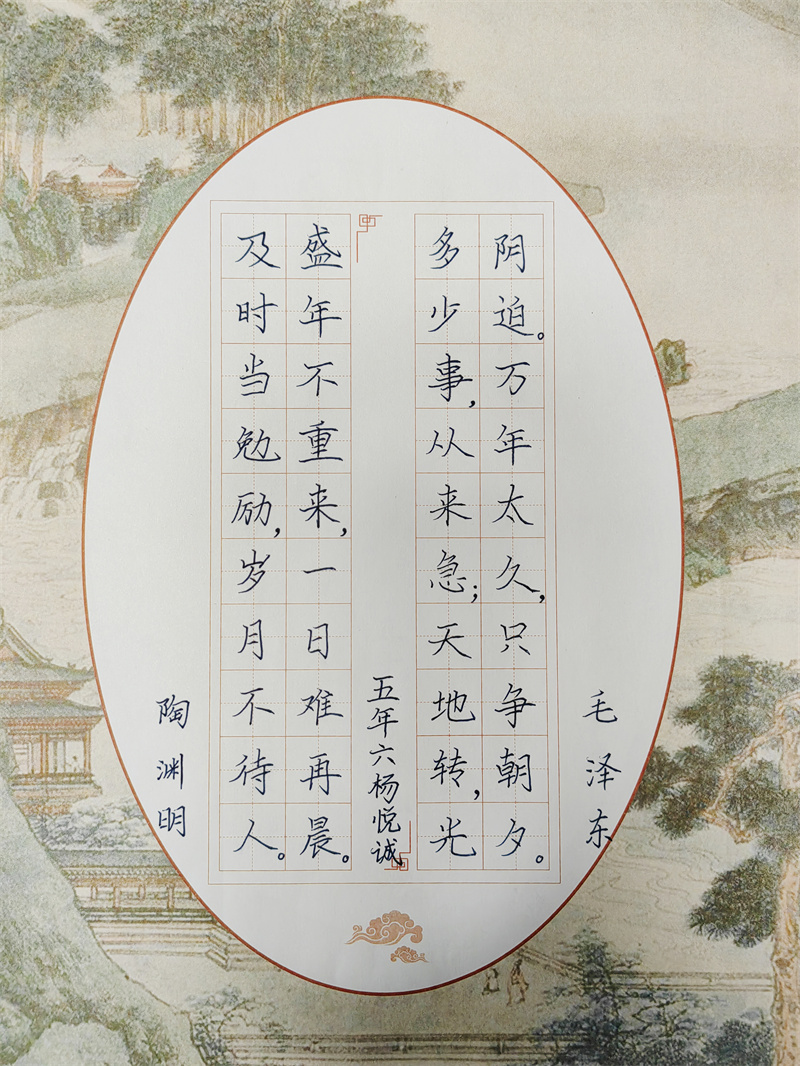 多少事，从来急；天地转，光
阴迫。万年太久，只争朝夕。
毛泽东
盛年不重来，一日难再晨。
及时当勉励，岁月不待人。
陶渊明
五年六杨悦诚